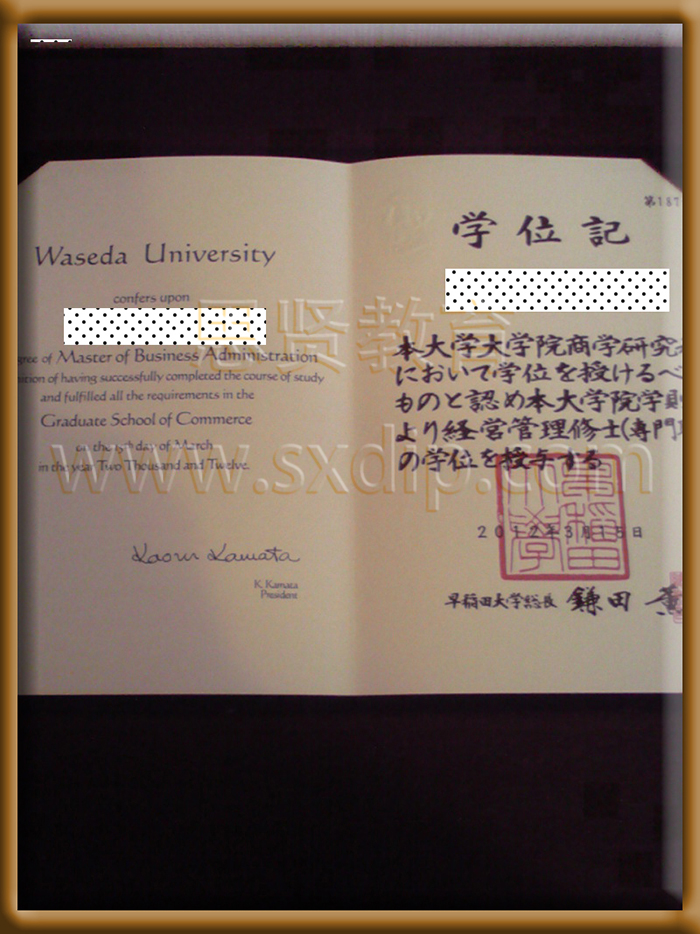 Waseda University
confers upon
gree of Master of Business Administration
ition of having successfully completed the course of study
and fulfilled all the requirements in the
Graduate School of Commerce
on the 15th day of March
in the year Two Thousand and Twelve.
Kaoru Kamata
K. Kamata
President
第187
学位記
本大学大学院商学研究
において学位を授けるべ
ものと認め本大学院学則
より経営管理修士(専門
の学位を授与する
2012年3月15日
早稲田大学
早稲田大学総長 鎌田 薫
贤教育
www.sxdip.com